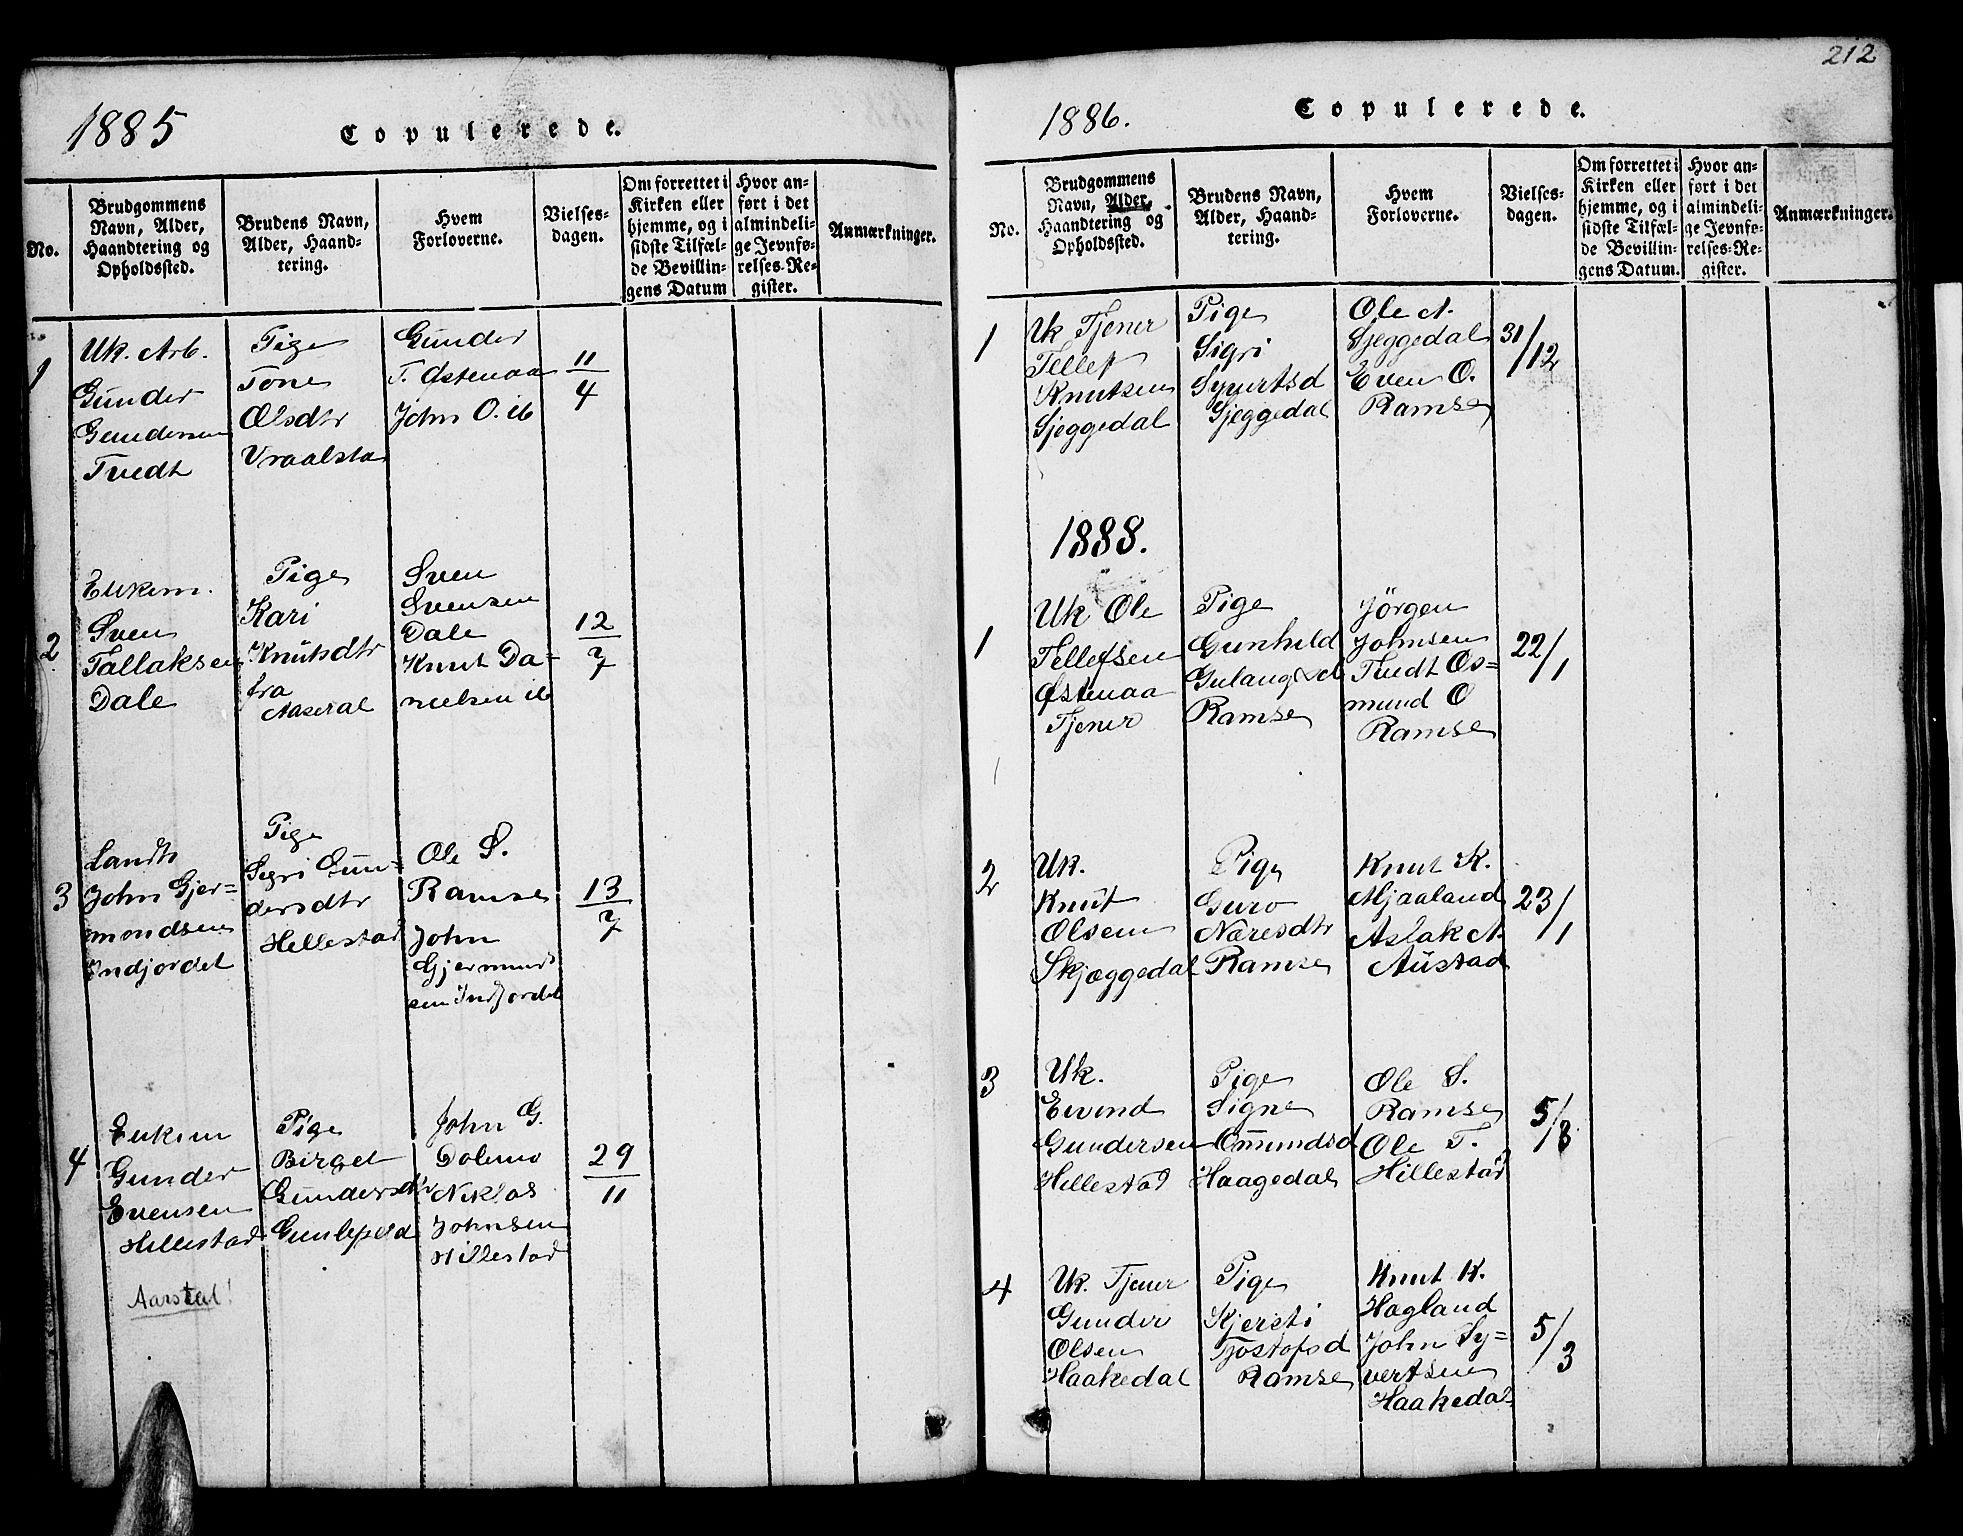 1885
Copulerede.
No.
Brudgommens
Navn, Alder,
Haandtering og
Opholdssted.
Brudens Navn,
Alder, Haand-
tering.
Hvem
Forloverne.
Vielses-
dagen.
Om forrettet i
Kirken eller
hjemme, og i
sidste Tilfæl-
de Bevillin-
gens Datum
Hvor an-
ført i det
almindeli-
ge Jevnfø-
relses-Re-
gister.
Anmærkninger.
1
Uk. Arb.
Gunder
Gundersen
Tvedt
Pige
Tone
Olsdtr
Vraalsta
Gunder
T. Østenaa
John O. ib
11
4
2
Enkem.
Sven
Tallaksen
Dale
Pige
Kari
Knutsdtr
fra
Aaseral
Sven
Svensen
Dale
Knut Da-
nielsen ib
12
7
3
Landh
John Gjer-
mondsen
Indjordet
Pige
Segri Gun-
dersdtr
Hellestad
Ole S.
Ramse
John
Gjermund
sen Indjordet
13
7
4
Enkem
Gunder
Evensen
Hillestad
Pige
Birget
Gundersdtr
John G.
Dolemo
Niklas
Johnsen
Hillestad
29
11
Aarstal!
212
1886.
Copulerede.
No.
Brudgommens
Navn, Alder,
Haandtering og
Opholdssted.
Brudens Navn,
Alder, Haand-
tering.
Hvem
Forloverne.
Vielses-
dagen.
Om forrettet i
Kirken eller
hjemme, og i
sidste Tilfæl-
de Bevillin-
gens Datum.
Hvor an-
ført i det
almindeli-
ge Jevnfø-
relses-Re-
gister.
Anmærkninger.
1
Uk Tjener
Tellef
Knutsen
Sjeggedal
Pige
Sigri
Syvertsd
Sjeggedal
Ole A.
Sjeggedal
Even O.
Ramse
31/12
1888.
1
Uk Ole
Tellefsen
Østenaa
Tjener
Pige
Gunhild
Ramse
Jörgen
Johnsen
Tvedt Os-
mund O
Ramse
22/1
2
Uk.
Knut
Olsen
Skjæggedal
Pige
Guro
Næresdtr
Ramse
Knut K.
Mjaaland
Aslak A.
Austad
23/1
3
Uk.
Eivind
Gundersen
Hillestad
Pige
Signe
Ommundsd
Haagedal
Ole S.
Ramse
Ole T.
Hillestad
5/8
4
Uk. Tjener
Gunder
Olsen
Haakedal
Pige
Kjersti
Tjostofsd
Ramse
Knut K.
Hagland
John Sy-
vertsen
Haakedal
5/3